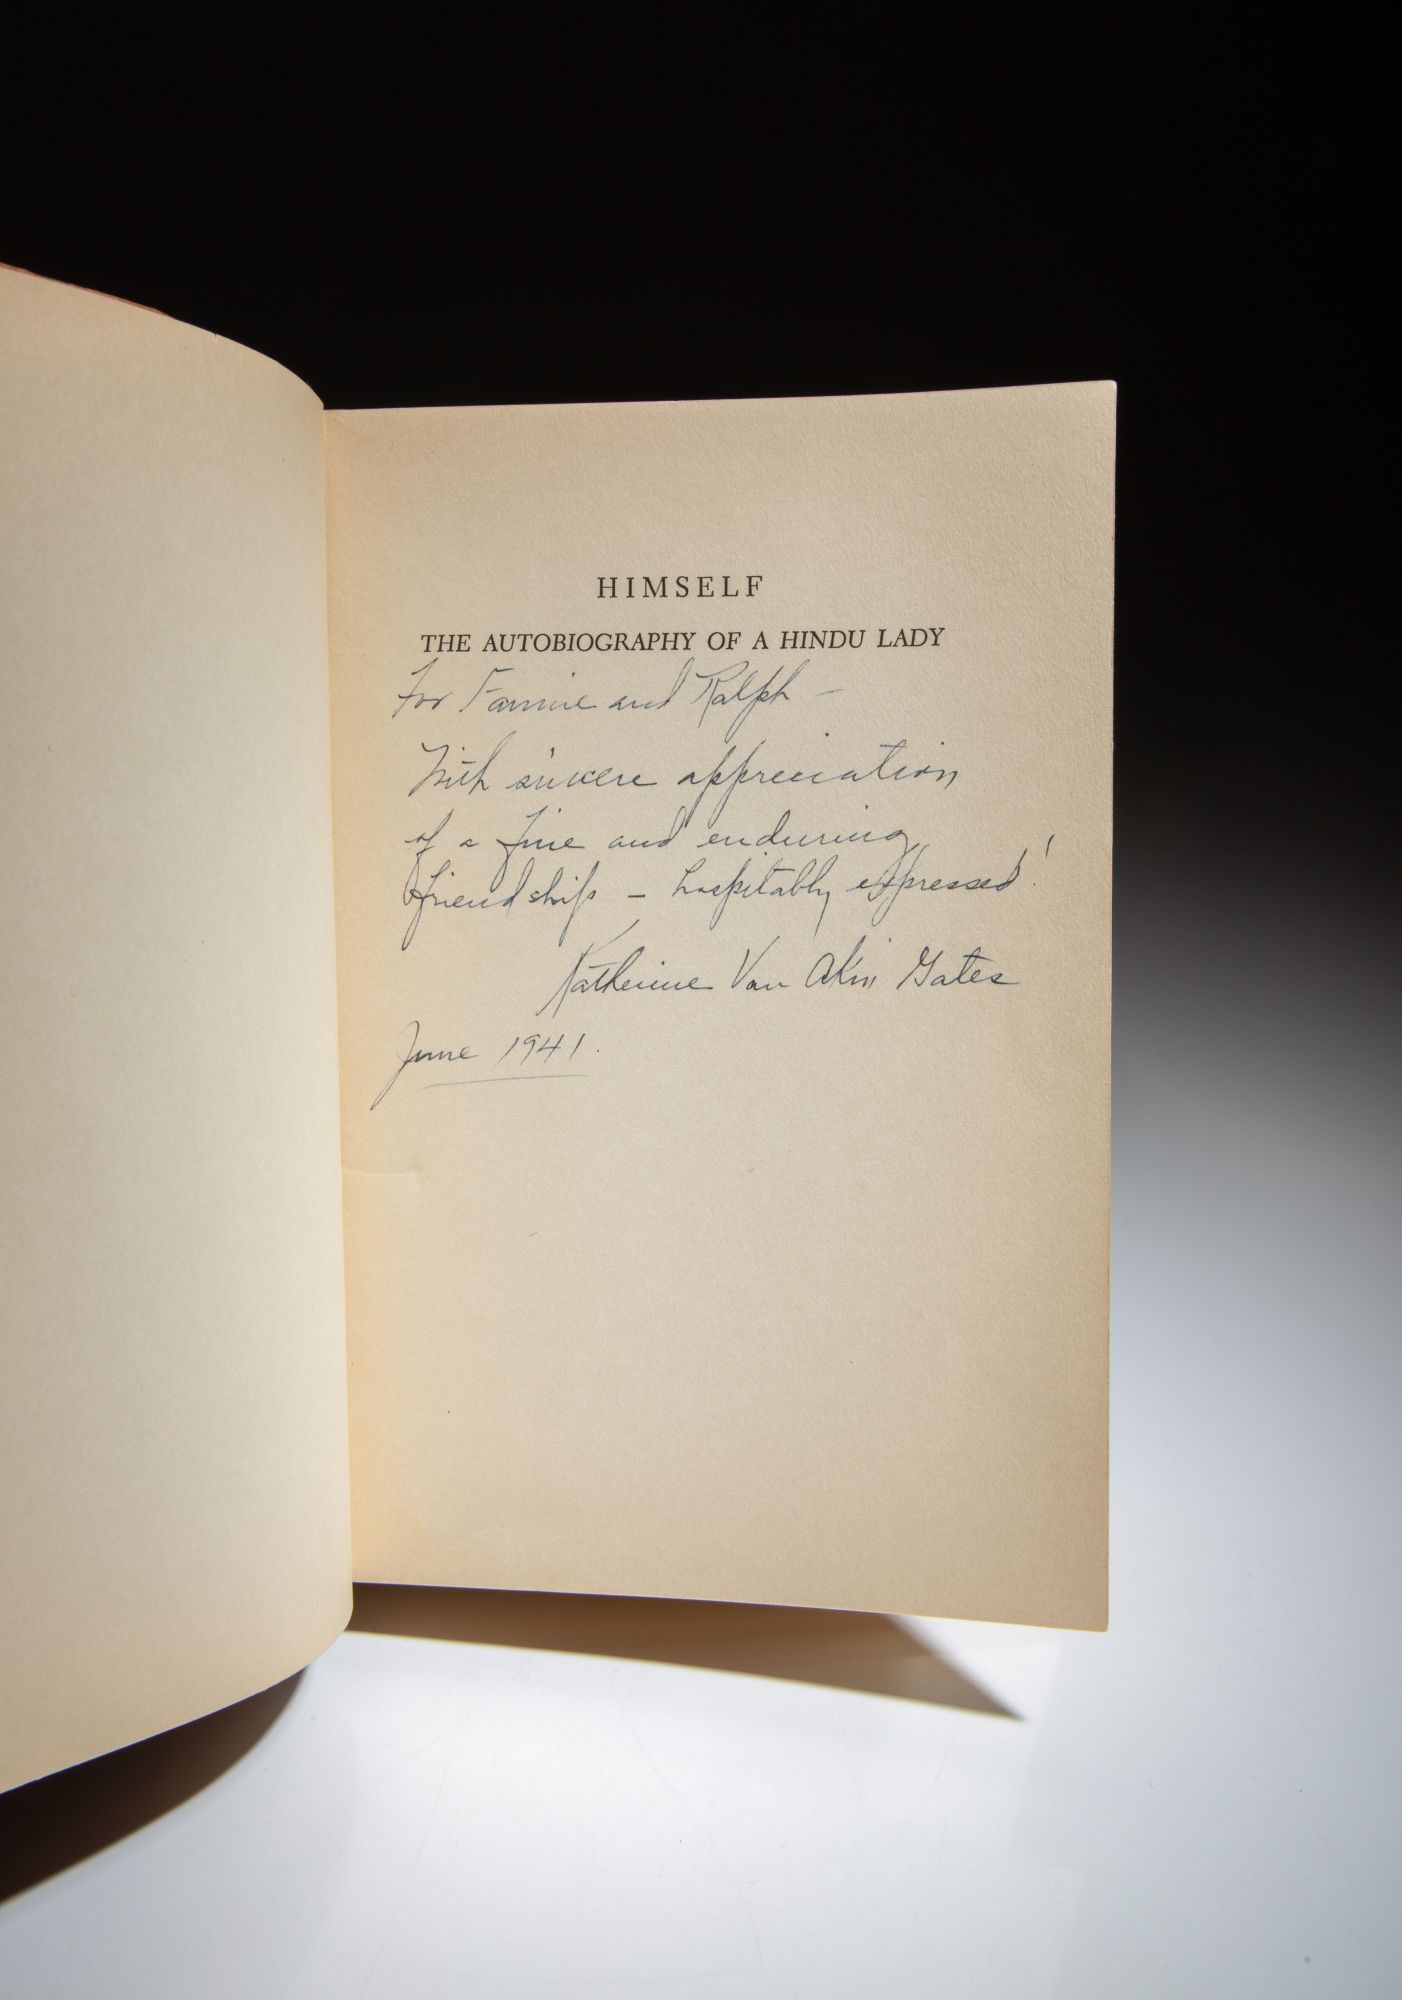 HIMSELF
THE AUTOBIOGRAPHY OF A HINDU LADY
For Fannie and Ralph –
With sincere appreciation
of a fine and enduring
friendship – hospitably expressed!
Katherine Van Akin Gates
June 1941.